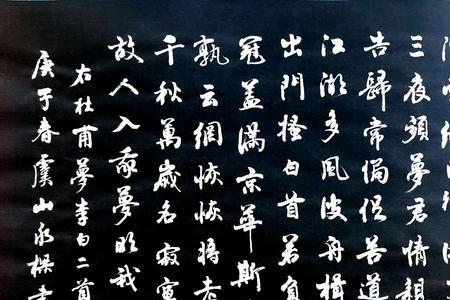 三夜頻夢君情親
告歸常侷促苦道
江湖多風波舟楫
出門搔白首若負
冠蓋滿京華斯
孰云網恢恢將老
千秋萬歲名寂寞
故人入我夢明我
右杜甫夢李白二首
庚子春虞山永樑